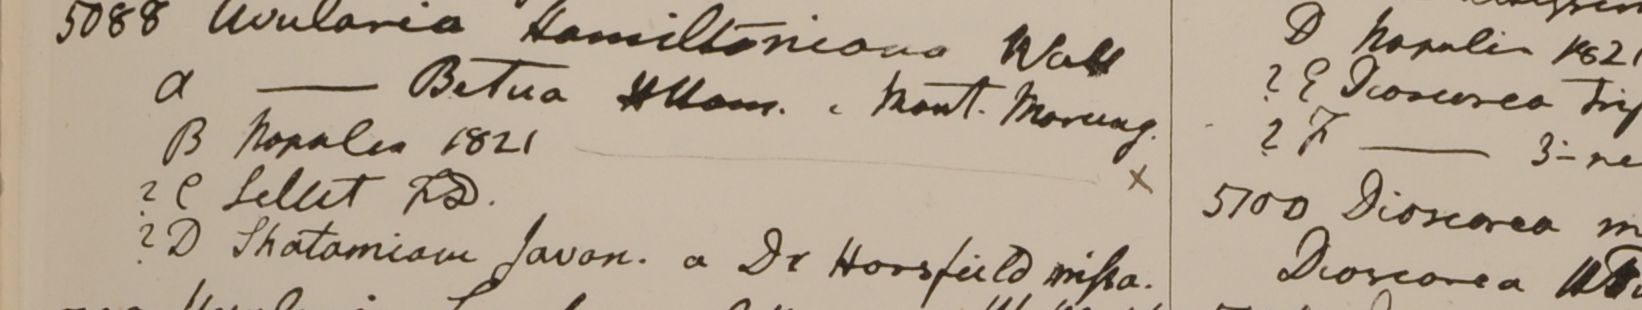 5088 Uvularia Hamiltoniana Wall
a —— Betua HHam. e Mont. Morung.
B Napalia 1821
? C Sillet F.D.
? D Shatamiam Javan. a Dr Horsfield missa.
D Napalia 1821
? E Dioscorea Trip
? F —— 3-ne
5100 Dioscorea m
Dioscorea